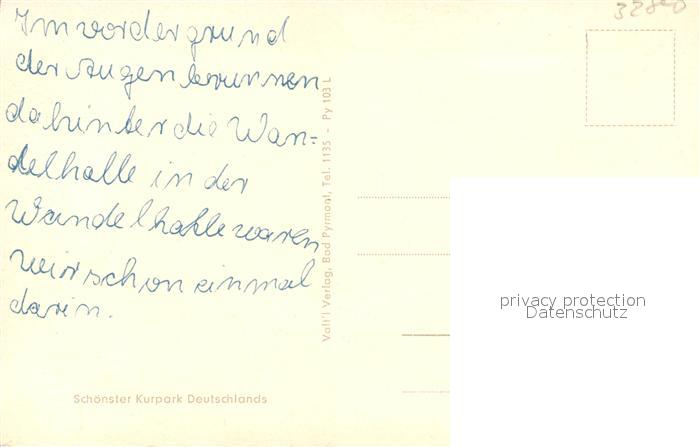 Im vordergrund
der Augenbrunnen
dahinter die Wan=
delhalle in der
Wandelhalle waren
wir schon einmal
darin.
Schönster Kurpark Deutschlands
Valt'l Verlag, Bad Pyrmont, Tel. 1135 - Py 103 L
privacy protection
Datenschutz